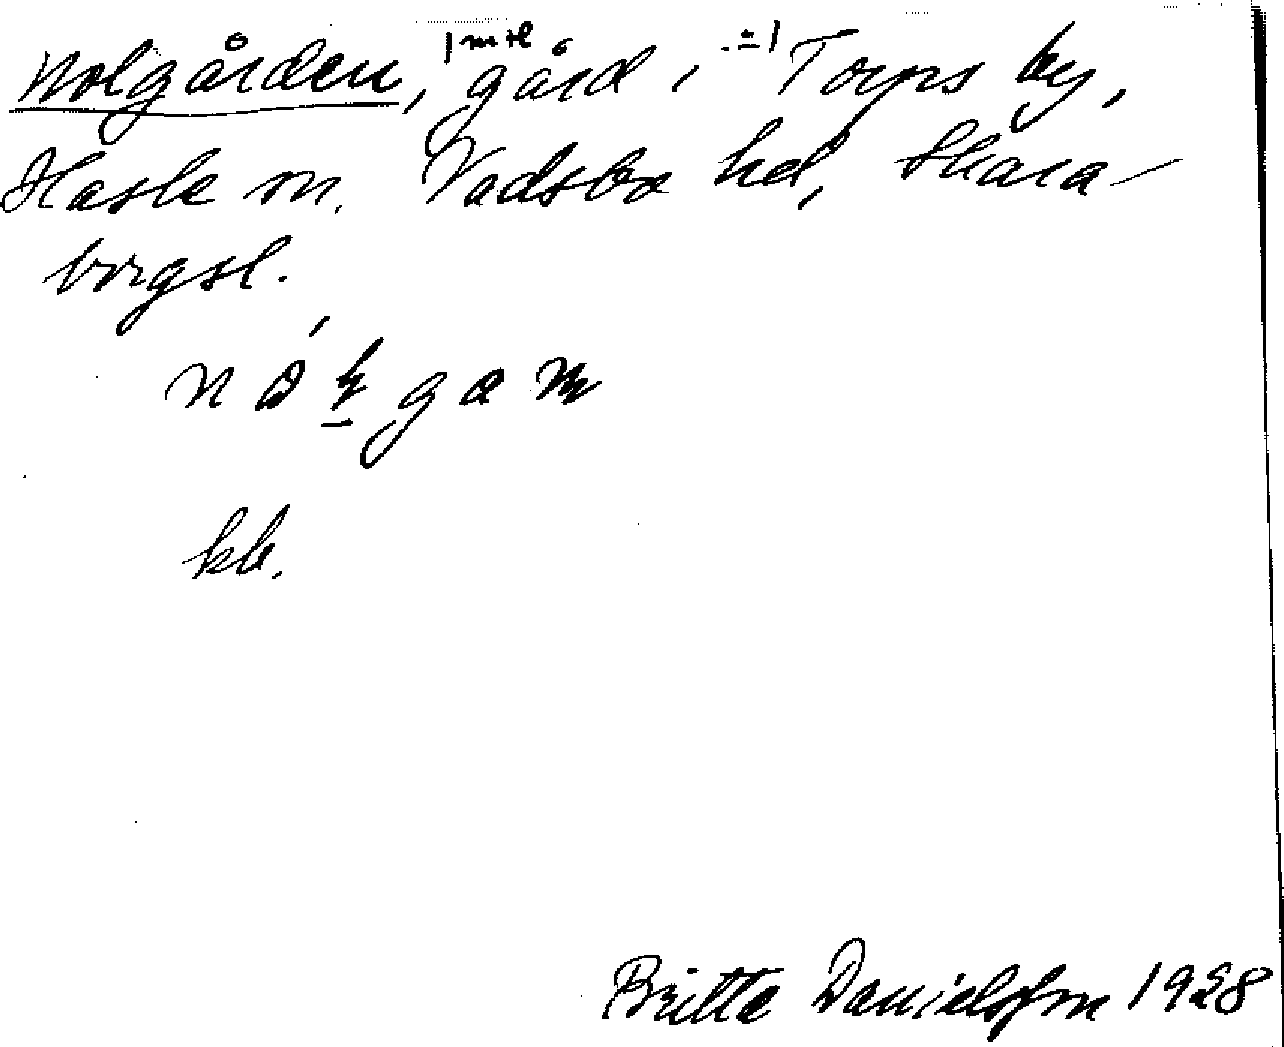 Nolgården, gård i Torps by,
Hasle sn. Vadsbo hd, Skara-
borgsl.
kb.
Britta Danielsson 1928